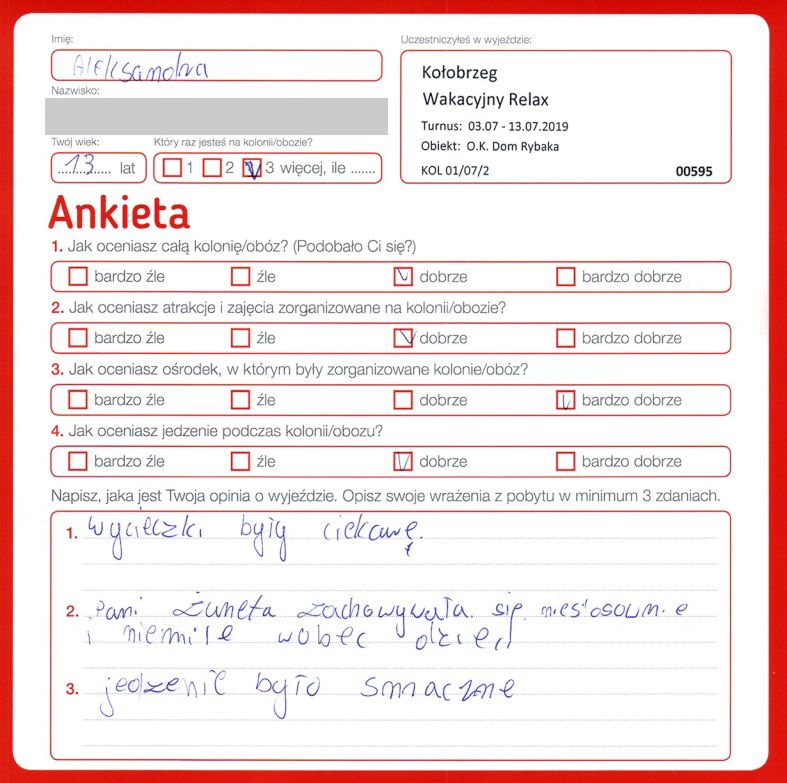 Imię:
Aleksandra
Nazwisko:
Twój wiek:
13 lat
Który raz jesteś na kolonii/obozie?
1 2 3 więcej, ile .......
Uczestniczyłeś w wyjeździe:
Kołobrzeg
Wakacyjny Relax
Turnus: 03.07 - 13.07.2019
Obiekt: O.K. Dom Rybaka
KOL 01/07/2 00595
Ankieta
1. Jak oceniasz całą kolonię/obóz? (Podobało Ci się?)
bardzo źle źle dobrze bardzo dobrze
2. Jak oceniasz atrakcje i zajęcia zorganizowane na kolonii/obozie?
bardzo źle źle dobrze bardzo dobrze
3. Jak oceniasz ośrodek, w którym były zorganizowane kolonie/obóz?
bardzo źle źle dobrze bardzo dobrze
4. Jak oceniasz jedzenie podczas kolonii/obozu?
bardzo źle źle dobrze bardzo dobrze
Napisz, jaka jest Twoja opinia o wyjeździe. Opisz swoje wrażenia z pobytu w minimum 3 zdaniach.
1. Wycieczki były ciekawe.
2. Pani Żaneta zachowywała się niestosownie
i niemile wobec dzieci
3. jedzenie było smaczne